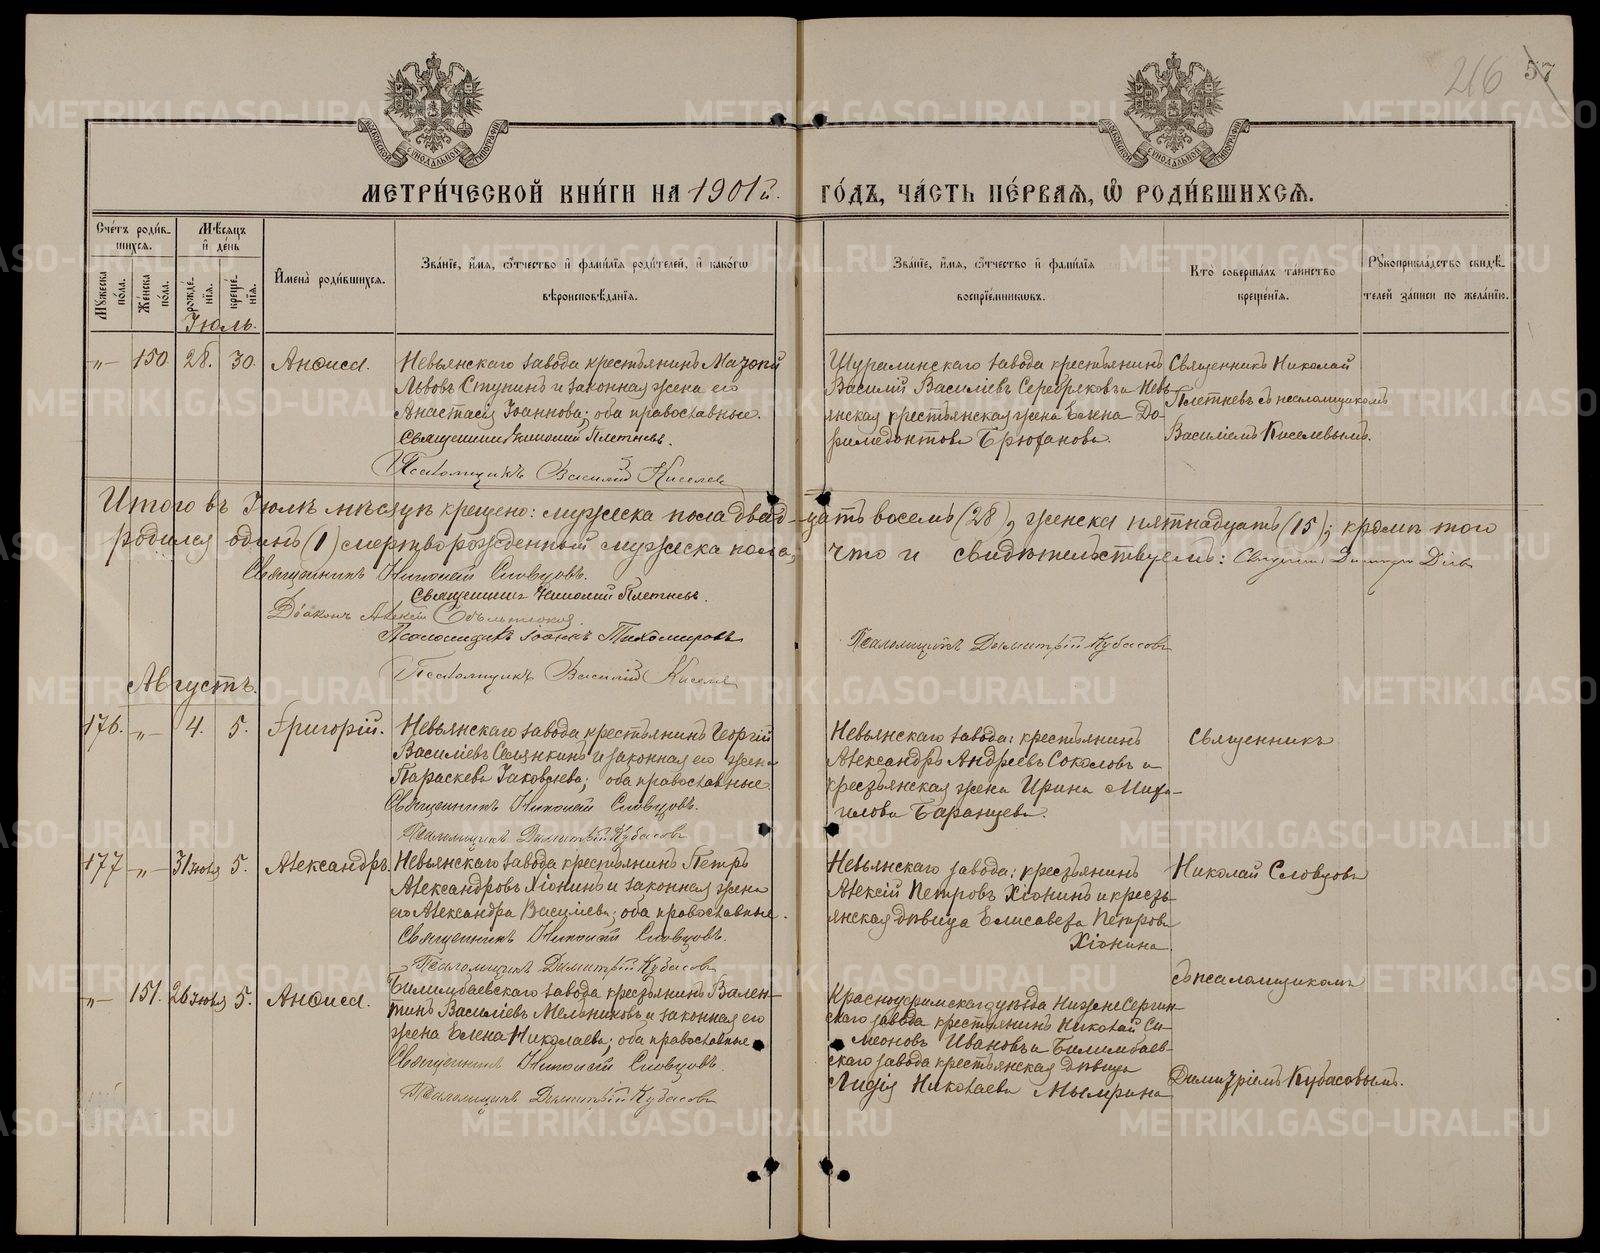 216 57
МЕТРИ́ЧЕСКОЙ КНИ́ГИ НА 1901й. ГО́ДЪ, ЧА́СТЬ ПЕ́РВАѦ, Ѿ РОДИ́ВШИХСѦ.
Сче́тъ роди́вшихсѧ.
Мꙋ́жеска по́ла.
Же́нска по́ла.
Мѣ́сѧцъ и҆ де́нь
рожде́нїѧ.
креще́нїѧ.
И҆мена̀ роди́вшихсѧ.
Зва́нїе, и҆́мѧ, ѻ҆́тчество и҆ фами́лїѧ роди́телей, и҆ како́гѡ
вѣроисповѣ́данїѧ.
Зва́нїе, и҆́мѧ, ѻ҆́тчество и҆ фами́лїѧ
воспрїе́мниковъ.
Кто̀ соверша́лъ та́инство
креще́нїѧ.
Рꙋкоприкла́дство свидѣ́-
телей за́писи по жела́нїю.
Іюль.
-„- 150. 28. 30. Анѳиса.
Невьянскаго завода крестьянинъ
Львовъ Ступинъ и законная жена его
Анастасія Іоаннова; оба православные.
Священникъ Николай Плетневъ.
Псаломщикъ Василій Киселев
Шуралинскаго завода крестьянинъ
Василій Василіевъ Серебряковъ и Невь-
янская крестьянская жена Евгена До-
римедонтова Брюханова.
Священникъ Николай
Плетневъ съ псаломщикомъ
Василіемъ Киселевымъ.
Итого въ Іюлѣ мѣсяцѣ крещено: мужеска пола двад-цать восемь (28), женска пятнадцать (15); кромѣ того
родился одинъ (1) мертворожденный мужеска пола; что и свидѣтельствуемъ:
Священникъ Николай Словцовъ.
Священникъ Николай Плетневъ.
Діаконъ Алексій
Псаломщикъ Іоаннъ Тихомировъ
Псаломщикъ Димитрій Кубасовъ
Псаломщикъ Василій Киселев
Августъ.
176. -„- 4. 5. Григорій.
Невьянскаго завода крестьянинъ Георгій
Василіевъ Селянкинъ и законная его жена
Параскева Іаковлева; оба православные.
Священникъ Николай Словцовъ.
Псаломщикъ Димитрій Кубасовъ
Невьянскаго завода: крестьянинъ
Александръ Андреевъ Соколовъ и
крестьянская жена Ирина Миха-
илова Баранцева.
Священникъ
177 -„- 31 іюля 5. Александръ.
Невьянскаго завода крестьянинъ Петръ
Александровъ Хіонинъ и законная жена
его Александра Василіева; оба православные.
Священникъ Николай Словцовъ.
Псаломщикъ Димитрій Кубасовъ
Невьянскаго завода: крестьянинъ
Алексій Петровъ Хіонинъ и кресть-
янская дѣвица Елисавета Петрова
Хіонина.
Николай Словцовъ
-„- 151. 26 іюля 5. Анѳиса.
Билимбаевскаго завода крестьянинъ Вален-
тинъ Василіевъ Мельниковъ и законная его
жена Елена Николаева; оба православные
Священникъ Николай Словцовъ.
Псаломщикъ Димитрій Кубасовъ
Красноуфимскаго уѣзда НижнеСергин-
скаго завода крестьянинъ Николай Си-
меоновъ Ивановъ и Билимбаев-
скаго завода крестьянская дѣвица
Лидія Николаева Мымрина
съ псаломщикомъ
Димитріемъ Кубасовымъ.
METRIKI.GASO-URAL.RU